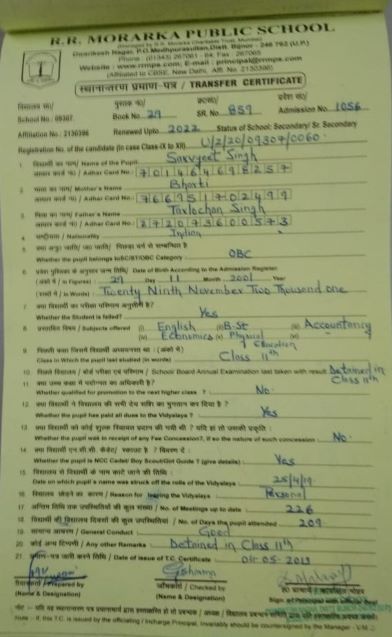 R.R. MORARKA PUBLIC SCHOOL
Dwarikesh Nagar, P.O. Medhpurasultan, Distt. Bijnor - 246 762 (U.P.)
Phone : (01343) 267061 - 64, Fax - 267065
Website : www.rrmps.com; E-mail : principal@rrmps.com
(Affiliated to CBSE, New Delhi, Affi. No. 2130386)
स्थानान्तरण प्रमाण-पत्र / TRANSFER CERTIFICATE
विद्यालय सं०/ पुस्तक सं०/ क्रम सं०/ प्रवेश सं०/
School No. 09307 Book No. 29 SR. No. 859 Admission No. 1056
Affiliation No. 2130386 Renewed Upto 2022 Status of School: Secondary/ Sr. Secondary
Registration No. of the candidate (in case Class-IX to XII) U/2/20/09307/0060
1. विद्यार्थी का नाम/ Name of the Pupil Sarvjeet Singh
आधार कार्ड नं० / Adhar Card No.: 701464698257
2. माता का नाम/ Mother's Name Bharti
आधार कार्ड नं० / Adhar Card No.: 766951702499
3. पिता का नाम/ Father's Name Tarlochan Singh
आधार कार्ड नं० / Adhar Card No.: 272073600573
4. राष्ट्रीयता / Nationality Indian
5. क्या अनु० जाति/ जन जाति/ पिछड़ा वर्ग से सम्बन्धित है
Whether the pupil belongs to SC/ST/OBC Category OBC
6. प्रवेश पुस्तिका के अनुसार जन्म तिथि/ Date of Birth According to the Admission Register
(अंकों में / in Figures) 29 Day 11 Month 2001 Year
(शब्दों में / in Words) Twenty Ninth November Two Thousand one
7. क्या विद्यार्थी का परीक्षा परिणाम अनुत्तीर्ण है?
Whether the Student is failed? Yes
8. प्रस्तावित विषय / Subjects offered (i) English (ii) B-St (iii) Accountancy
(iv) Economics (v) Physical Education
9. पिछली कक्षा जिसमें विद्यार्थी अध्ययनरत था (अंकों में)
Class in Which the pupil last studied (in words) Class 11th
10. पिछले विद्यालय / बोर्ड परीक्षा एवं परिणाम / School/ Board Annual Examination last taken with result Detained in Class 11th
11. क्या उच्च कक्षा में पदोन्नत का अधिकारी है?
Whether qualified for promotion to the next higher class ? No
12. क्या विद्यार्थी ने विद्यालय की सभी देय राशि का भुगतान कर दिया है ?
Whether the pupil has paid all dues to the Vidyalaya ? Yes
13. क्या विद्यार्थी को कोई शुल्क रियायत प्रदान की गयी थी ? यदि हो तो उसकी प्रकृति :
Whether the pupil was in receipt of any Fee Concession?, if so the nature of such concession No
14. क्या विद्यार्थी एन.सी.सी. कैडेट/ स्काउट है ? विवरण दें :
Whether the pupil is NCC Cadet/ Boy Scout/Girl Guide ? (give details) Yes
15. विद्यालय से विद्यार्थी के नाम काटे जाने की तिथि :
Date on which pupil's name was struck off the rolls of the Vidyalaya 25/4/19
16. विद्यालय छोड़ने का कारण / Reason for leaving the Vidyalaya Personal
17. अन्तिम तिथि तक उपस्थितियों की कुल संख्या / No. of Meetings up to date 226
18. विद्यार्थी की विद्यालय दिवसों की कुल उपस्थितियां / No. of Days the pupil attended 209
19. सामान्य आचरण / General Conduct Good
20. कोई अन्य टिप्पणी / Any other Remarks Detained in Class 11th
21. प्रमाण-पत्र जारी करने तिथि / Date of Issue of T.C. Certificate 01-05-2019
Prepared by जाँचकर्ता / Checked by
(Name & Designation) (Name & Designation)
Note : If this T.C. is issued by the officiating / Incharge Principal, Invariably should be countersigned by the Manager - V.M.C